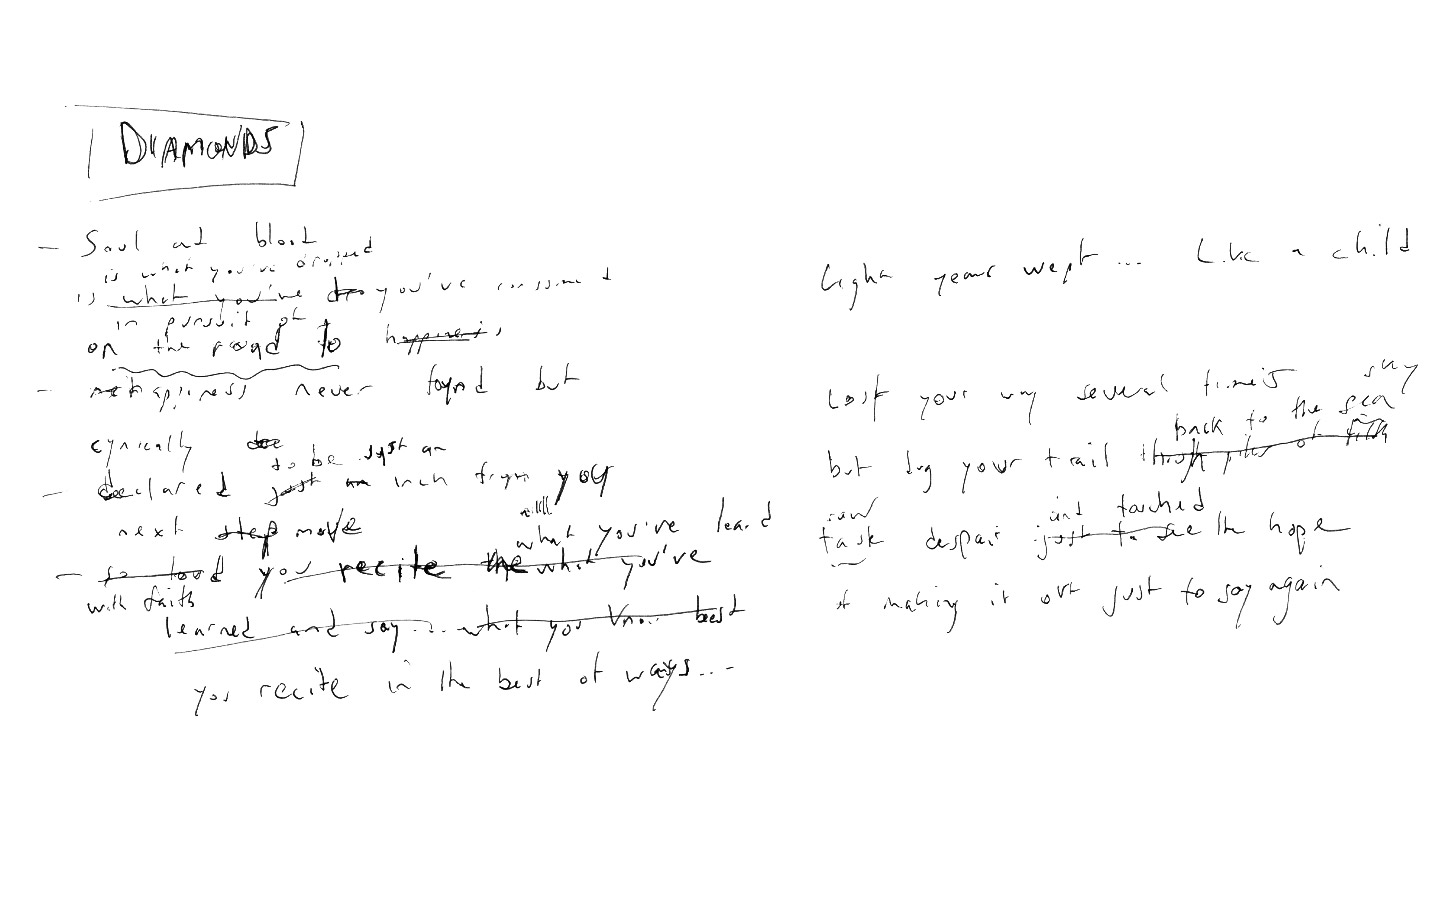 DIAMONDS
- Soul and blood
is what you've dropped
is what you've you've
in pursuit of
on the road to happiness
- happiness never found but
cynically
to be just an
- declared just an inch from you
next step move
what you've leard
- so loud you recite the what you've
with faith
learned and say... what you know best
you recite in the best of ways...
light years wept... Like a child
Lost your way several times
back to the sea
but dug your trail through piles of filth
saw and touched
despair just to see the hope
of making it out just to say again